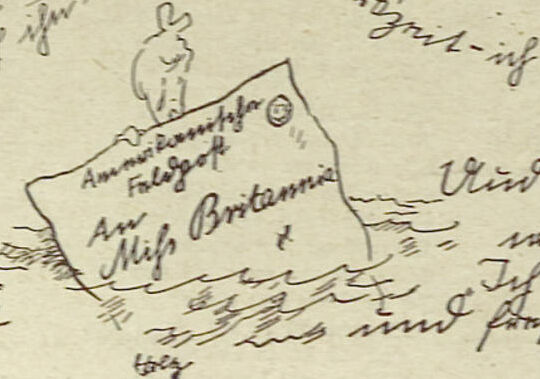 ihr
Zeit-ich
Ammerikanische
Feldpost
An
Miss Britannia
Und
Ich
und